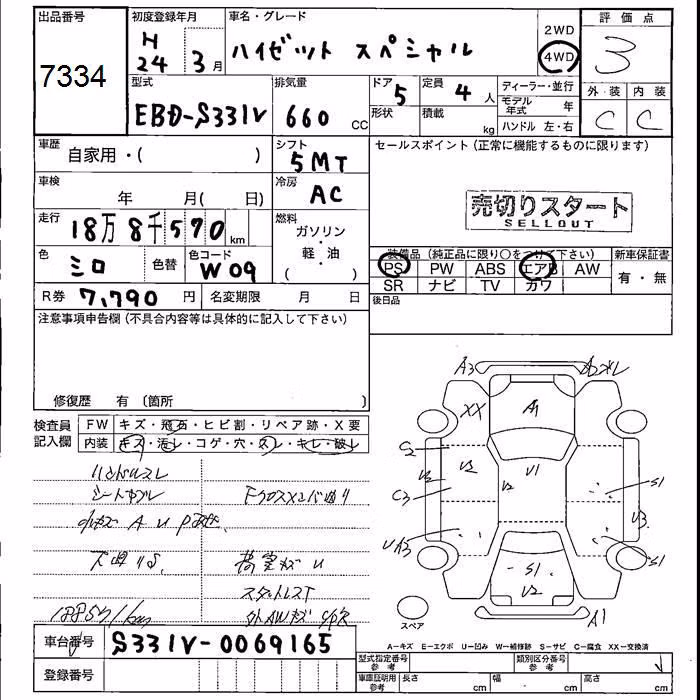 出品番号
7334
初度登録年月
H
24 3月
車名・グレード
ハイゼット スペシャル
2WD
4WD
評価点
3
型式
EBD-S331V
排気量
660 CC
ドア
5
形状
定員
4 人
積載
kg
ディーラー・並行
モデル年式 年
ハンドル 左・右
外装 内装
C C
車歴
自家用・( )
シフト
5MT
セールスポイント(正常に機能するものに限ります)
車検
年 月( 日)
冷房
AC
売切りスタート
SELLOUT
走行
18万8千570 km
燃料
ガソリン
・
軽・油
( )
色
シロ
色替
色コード
W09
装備品(純正品に限り○をつけて下さい)
PS PW ABS エアB AW
SR ナビ TV カワ
新車保証書
有・無
R券 7,790 円
名変期限 月 日
後日品
注意事項申告欄(不具合内容等は具体的に記入して下さい)
修復歴 有(箇所 )
検査員記入欄
FW キズ・飛石・ヒビ割・リペア跡・X要
内装 キズ・汚レ・コゲ・穴・スレ・キレ・破レ
ハンドルスレ
A3
XX
A1
U1
U2
S1
U3
C2
C3
S1
U2
A1
スペア
A-キズ E-エクボ U-凹み W-補修跡 S-サビ C-腐食 XX-交換済
車台番号 S331V-0069165
登録番号
型式指定番号 参考
類別区分番号 参考
車庫証明用 参考
長さ cm
幅 cm
高さ cm